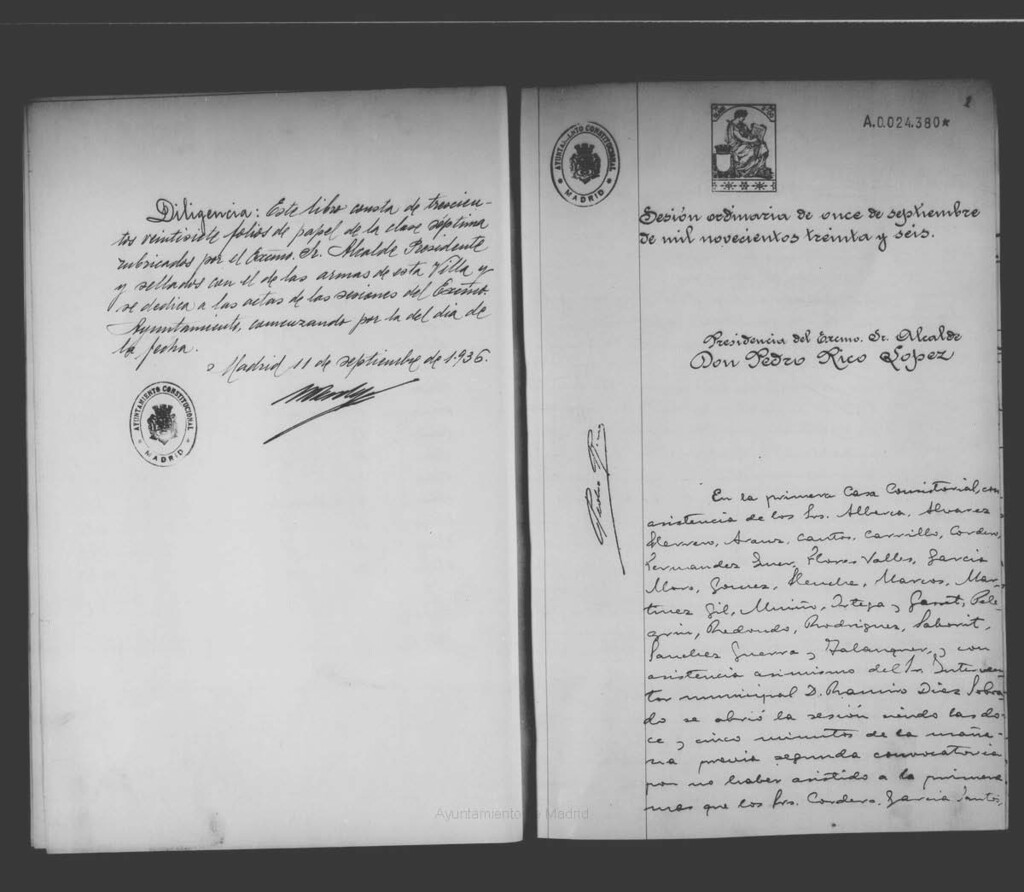 Diligencia: Este libro consta de trescien-
tos veintisiete folios de papel de la clase séptima
rubricados por el Excmo. Sr. Alcalde Presidente
y sellados con el de las armas de esta Villa y
se dedica a las actas de las sesiones del Excmo.
Ayuntamiento, comenzando por la del dia de
la fecha.
Madrid 11 de septiembre de 1.936.
AYUNTAMIENTO CONSTITUCIONAL
MADRID
AYUNTAMIENTO CONSTITUCIONAL
MADRID
A.0.024.380*
Sesión ordinaria de once de septiembre
de mil novecientos treinta y seis.
Presidencia del Excmo. Sr. Alcalde
Don Pedro Rico López
Pedro Rico
En la primera Casa Consistorial, con
asistencia de los Srs. Alberca, Alvarez
Herrero, Arauz, Cantos, Carrillo, Cordero,
Fernandez Flores Valles, Garcia
Moro, Gomez, Henche, Marcos, Mar-
tinez Gil, Muiño, Ortega y Gasset, Pele-
grin, Redondo, Rodriguez, Saborit,
Sanchez Guerra y Talanquer, y con
asistencia asimismo del Sr. Interven-
tor municipal D. Ramiro Diez Sobra-
do se abrió la sesión siendo las do-
ce y cinco minutos de la maña-
na previa segunda convocatoria
por no haber asistido a la primera
mas que los Srs. Cordero, Garcia Santos,
Ayuntamiento de Madrid